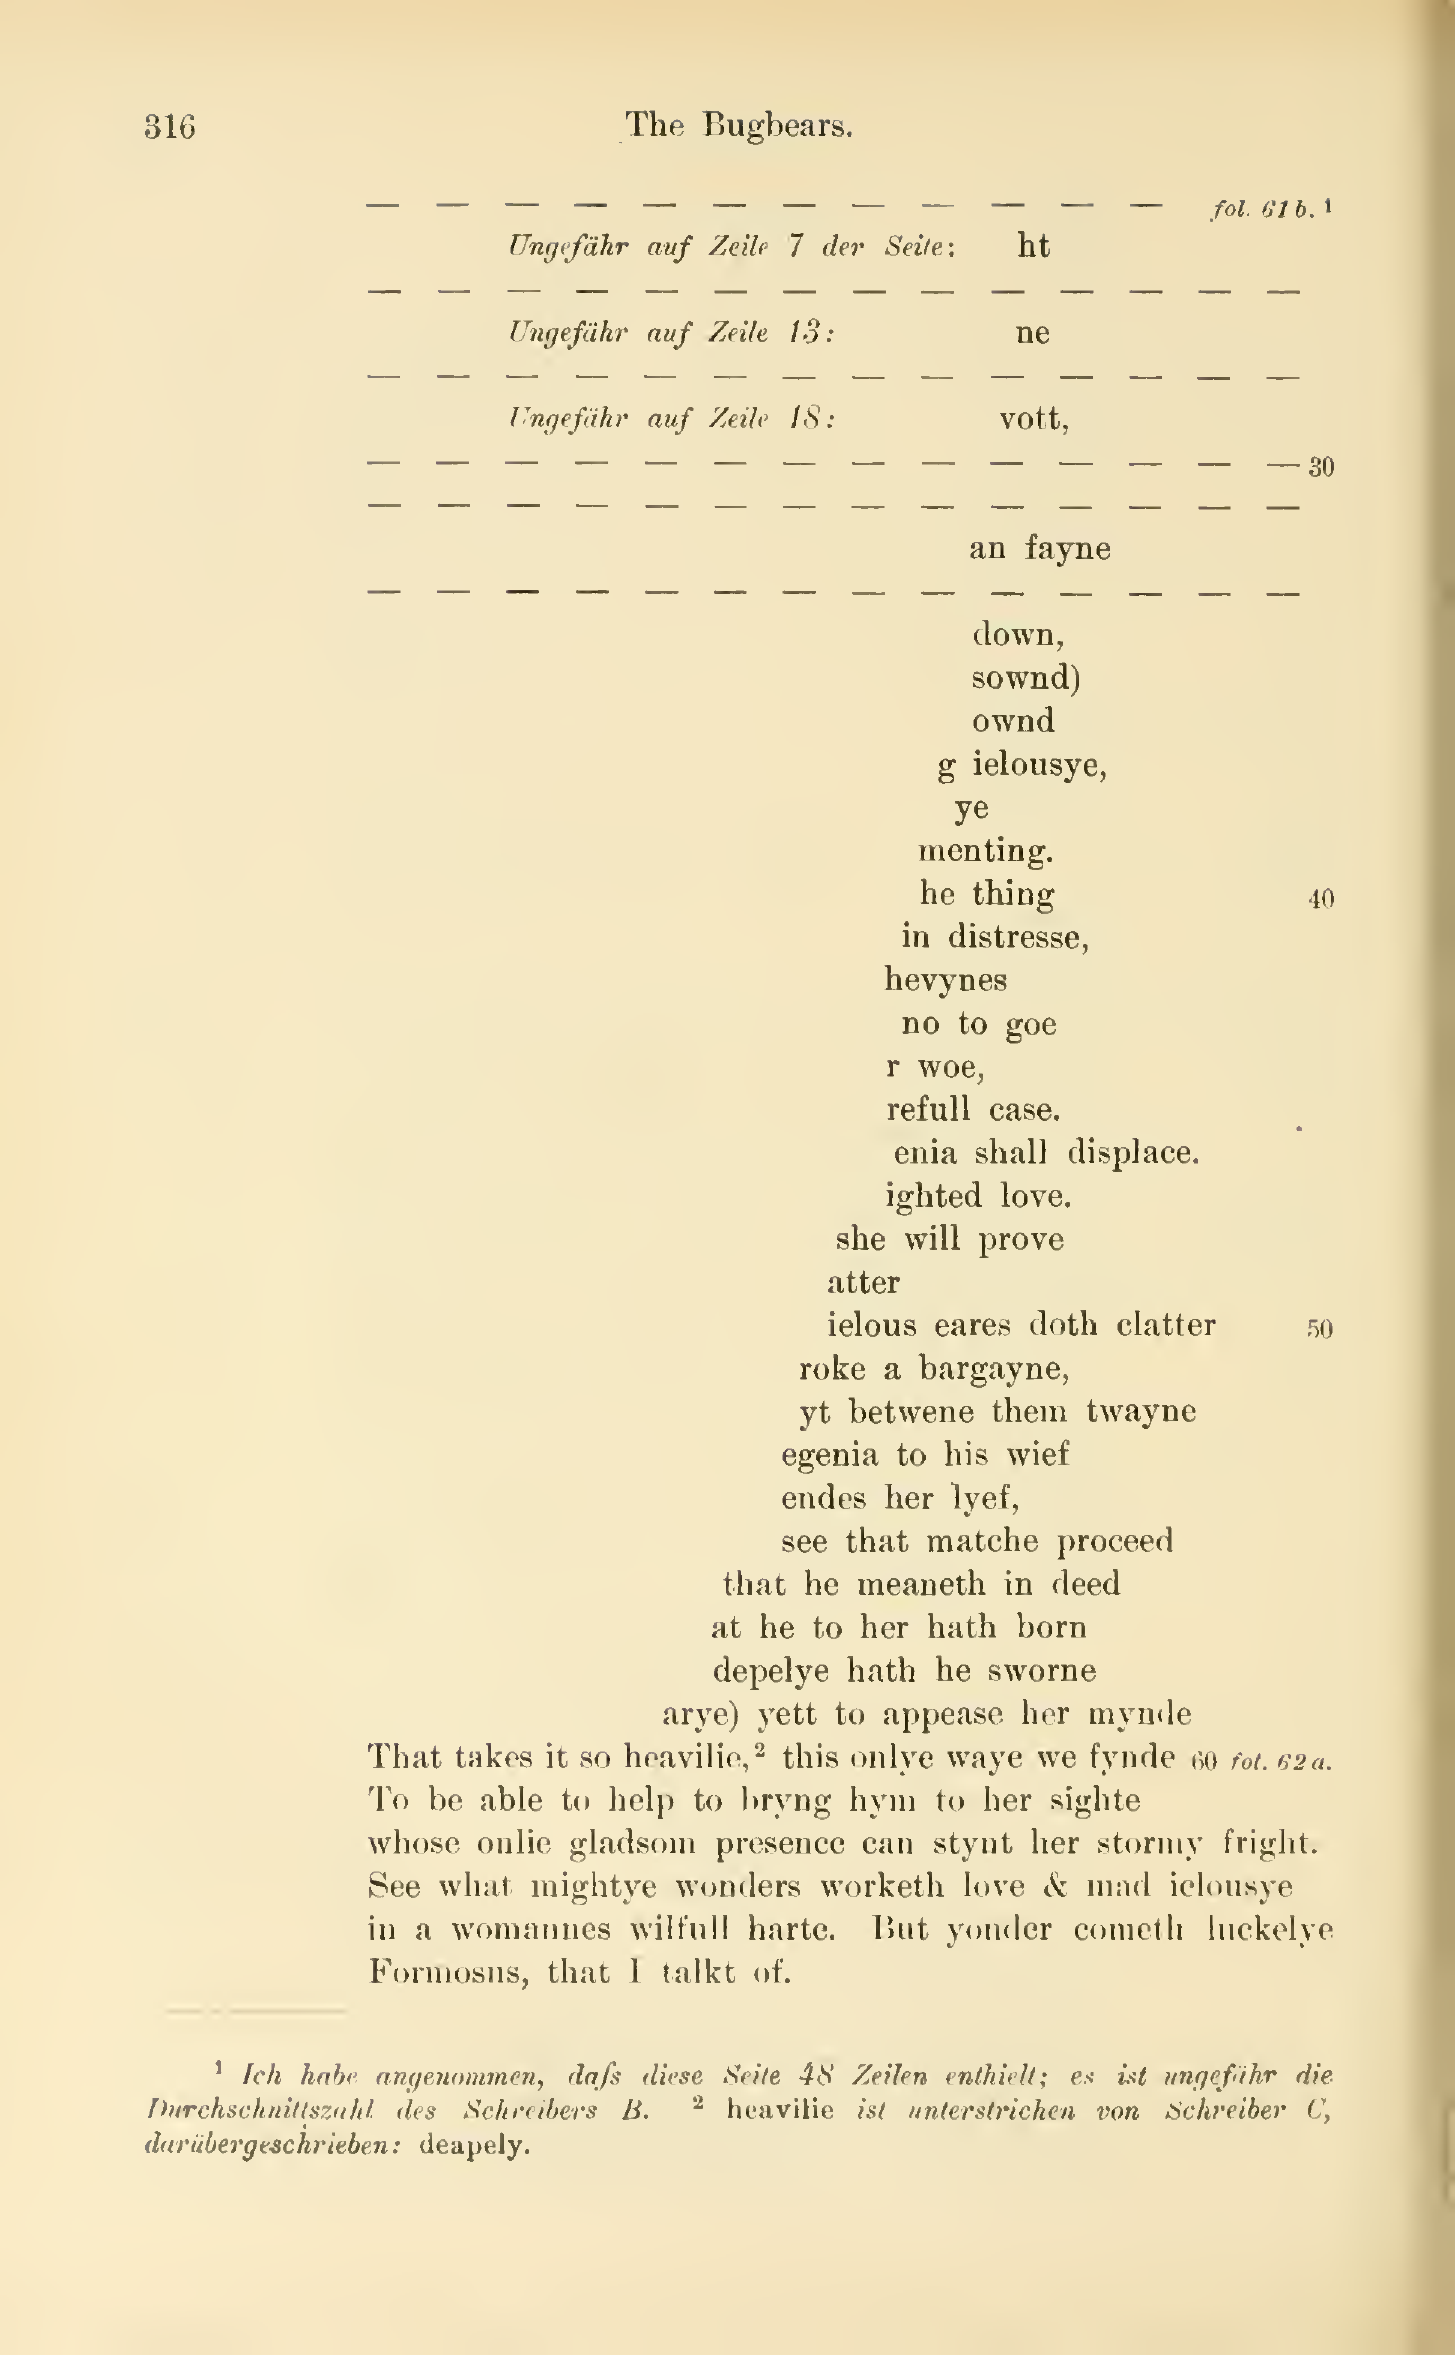 316 The Bugbears.
— — — — — — — — — — — — fol. 61b.¹
Ungefähr auf Zeile 7 der Seite: ht
— — — — — — — — — — — — — —
Ungefähr auf Zeile 13: ne
— — — — — — — — — — — — — —
Ungefähr auf Zeile 18: vott,
— — — — — — — — — — — — — — 30
— — — — — — — — — — — — — —
an fayne
— — — — — — — — — — — — — —
down,
sownd)
ownd
g ielousye,
ye
menting.
he thing 40
in distresse,
hevynes
no to goe
r woe,
refull case.
enia shall displace.
ighted love.
she will prove
atter
ielous eares doth clatter 50
roke a bargayne,
yt betwene them twayne
egenia to his wief
endes her lyef,
see that matche proceed
that he meaneth in deed
at he to her hath born
depelye hath he sworne
arye) yett to appease her mynde
That takes it so heavilie,² this onlye waye we fynde 60 fol. 62a.
To be able to help to bryng hym to her sighte
whose onlie gladsom presence can stynt her stormy fright.
See what mightye wonders worketh love & mad ielousye
in a womannes wilfull harte. But yonder cometh luckelye
Formosus, that I talkt of.
¹ Ich habe angenommen, daſs diese Seite 48 Zeilen enthielt; es ist ungefähr die
Durchschnittszahl des Schreibers B. ² heavilie ist unterstrichen von Schreiber C,
darübergeschrieben: deapely.